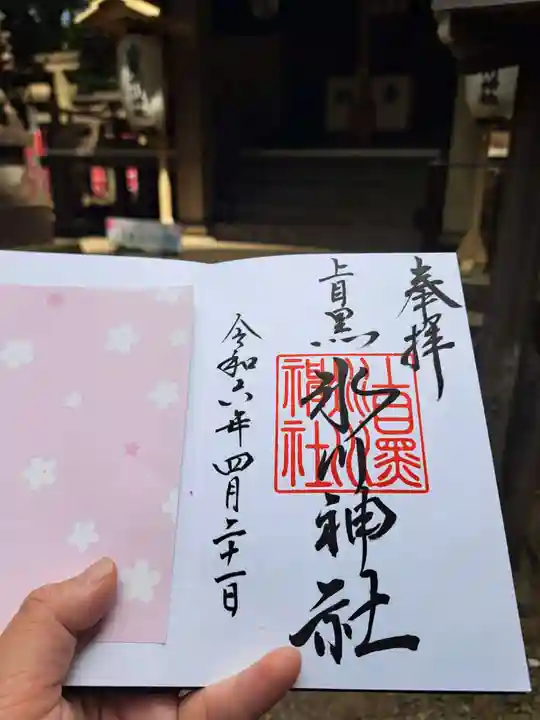 奉拝
上目黒
氷川神社
上目黒氷川神社
令和六年四月二十一日